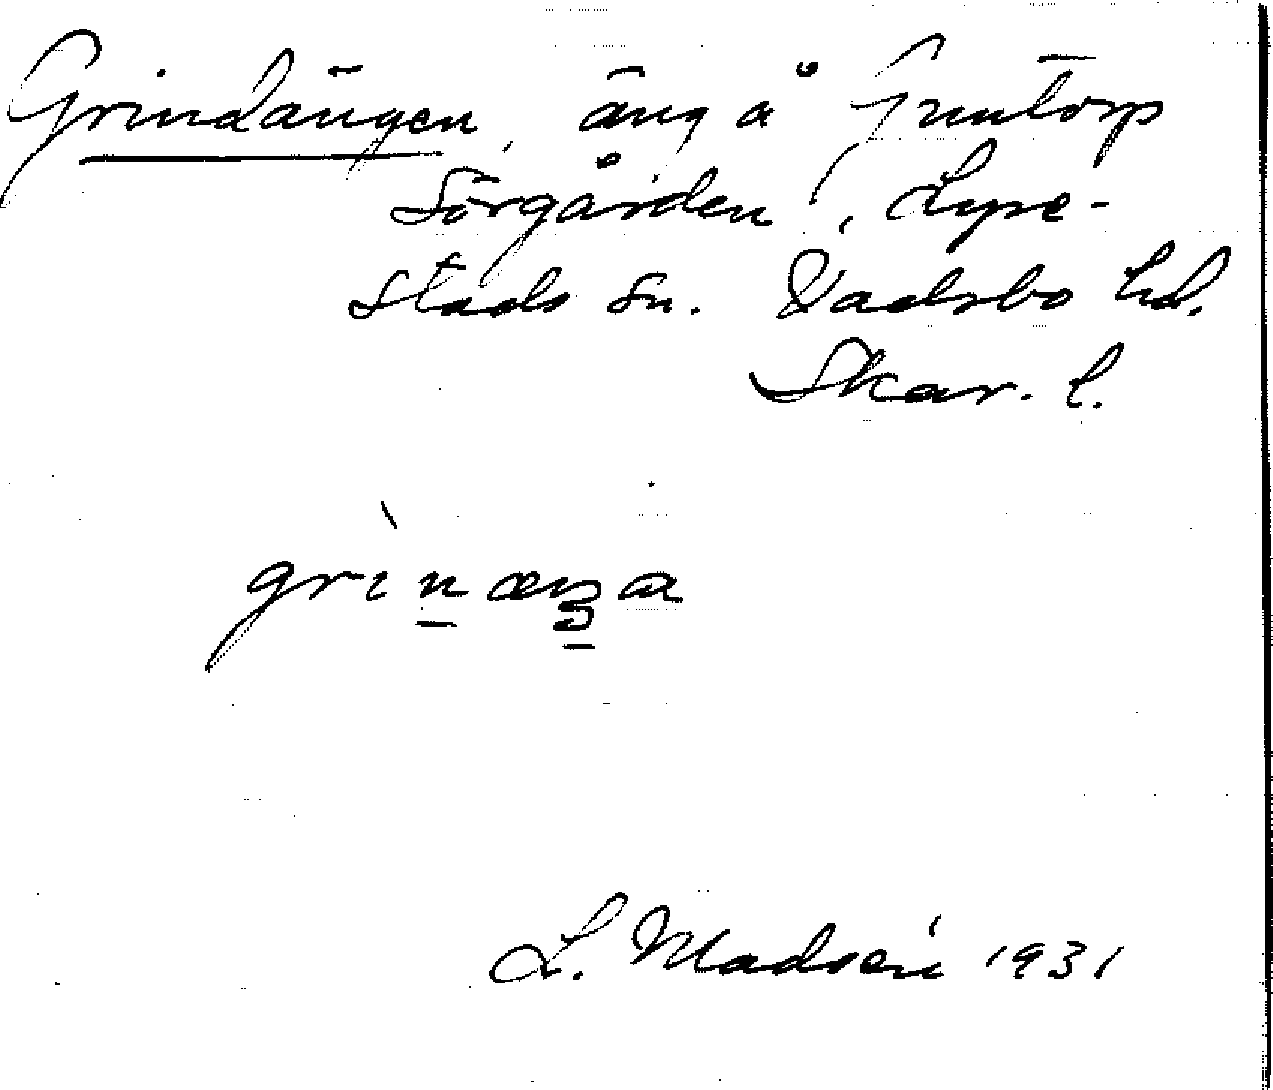 Grindängen, äng å Funtorp
Sörgården, Lyre-
stads sn. Vadsbo hd.
Skar. l.
grìn æŋa
L. Madsén 1931